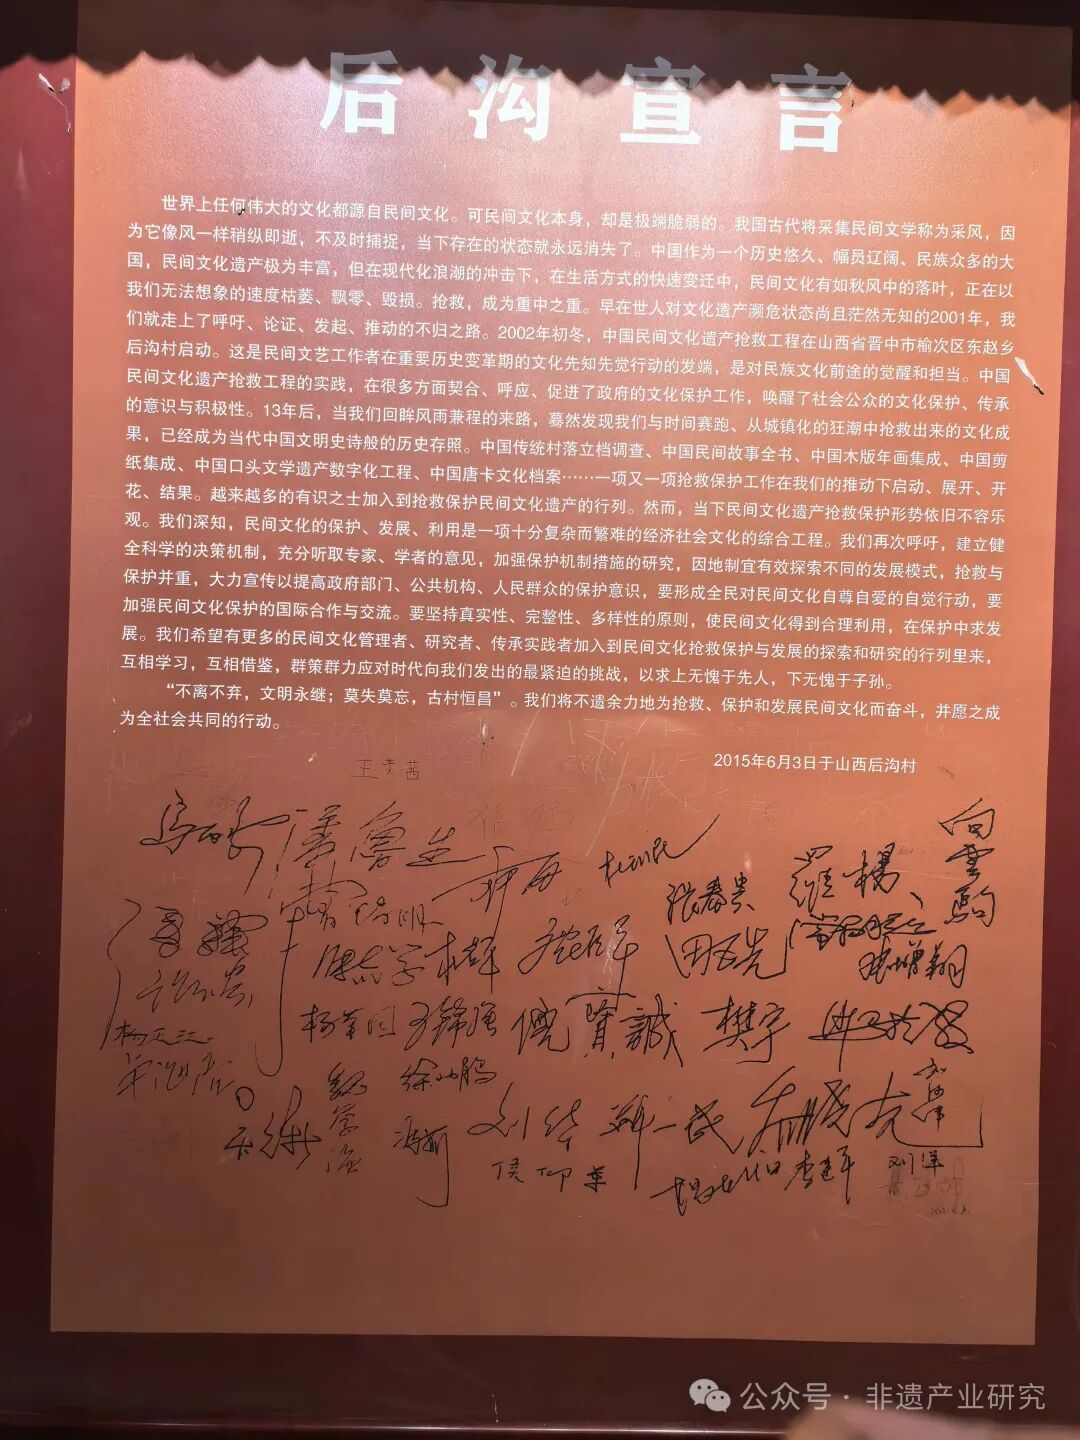 后沟宣言
世界上任何伟大的文化都源自民间文化。可民间文化本身，却是极端脆弱的。我国古代将采集民间文学称为采风，因
为它像风一样稍纵即逝，不及时捕捉，当下存在的状态就永远消失了。中国作为一个历史悠久、幅员辽阔、民族众多的大
国，民间文化遗产极为丰富，但在现代化浪潮的冲击下，在生活方式的快速变迁中，民间文化有如秋风中的落叶，正在以
我们无法想象的速度枯萎、飘零、毁损。抢救，成为重中之重。早在世人对文化遗产濒危状态尚且茫然无知的2001年，我
们就走上了呼吁、论证、发起、推动的不归之路。2002年初冬，中国民间文化遗产抢救工程在山西省晋中市榆次区东赵乡
后沟村启动。这是民间文艺工作者在重要历史变革期的文化先知先觉行动的发端，是对民族文化前途的觉醒和担当。中国
民间文化遗产抢救工程的实践，在很多方面契合、呼应、促进了政府的文化保护工作，唤醒了社会公众的文化保护、传承
的意识与积极性。13年后，当我们回眸风雨兼程的来路，蓦然发现我们与时间赛跑、从城镇化的狂潮中抢救出来的文化成
果，已经成为当代中国文明史诗般的历史存照。中国传统村落立档调查、中国民间故事全书、中国木版年画集成、中国剪
纸集成、中国口头文学遗产数字化工程、中国唐卡文化档案……一项又一项抢救保护工作在我们的推动下启动、展开、开
花、结果。越来越多的有识之士加入到抢救保护民间文化遗产的行列。然而，当下民间文化遗产抢救保护形势依旧不容乐
观。我们深知，民间文化的保护、发展、利用是一项十分复杂而繁难的经济社会文化的综合工程。我们再次呼吁，建立健
全科学的决策机制，充分听取专家、学者的意见，加强保护机制措施的研究，因地制宜有效探索不同的发展模式，抢救与
保护并重，大力宣传以提高政府部门、公共机构、人民群众的保护意识，要形成全民对民间文化自尊自爱的自觉行动，要
加强民间文化保护的国际合作与交流。要坚持真实性、完整性、多样性的原则，使民间文化得到合理利用，在保护中求发
展。我们希望有更多的民间文化管理者、研究者、传承实践者加入到民间文化抢救保护与发展的探索和研究的行列里来，
互相学习，互相借鉴，群策群力应对时代向我们发出的最紧迫的挑战，以求上无愧于先人，下无愧于子孙。
“不离不弃，文明永继；莫失莫忘，古村恒昌”。我们将不遗余力地为抢救、保护和发展民间文化而奋斗，并愿之成
为全社会共同的行动。
2015年6月3日于山西后沟村
潘鲁生
罗杨
向云驹
张春贵
杨正江
倪宝诚
樊宇
刘华
侯仰军
李建军
刘洋
公众号·非遗产业研究